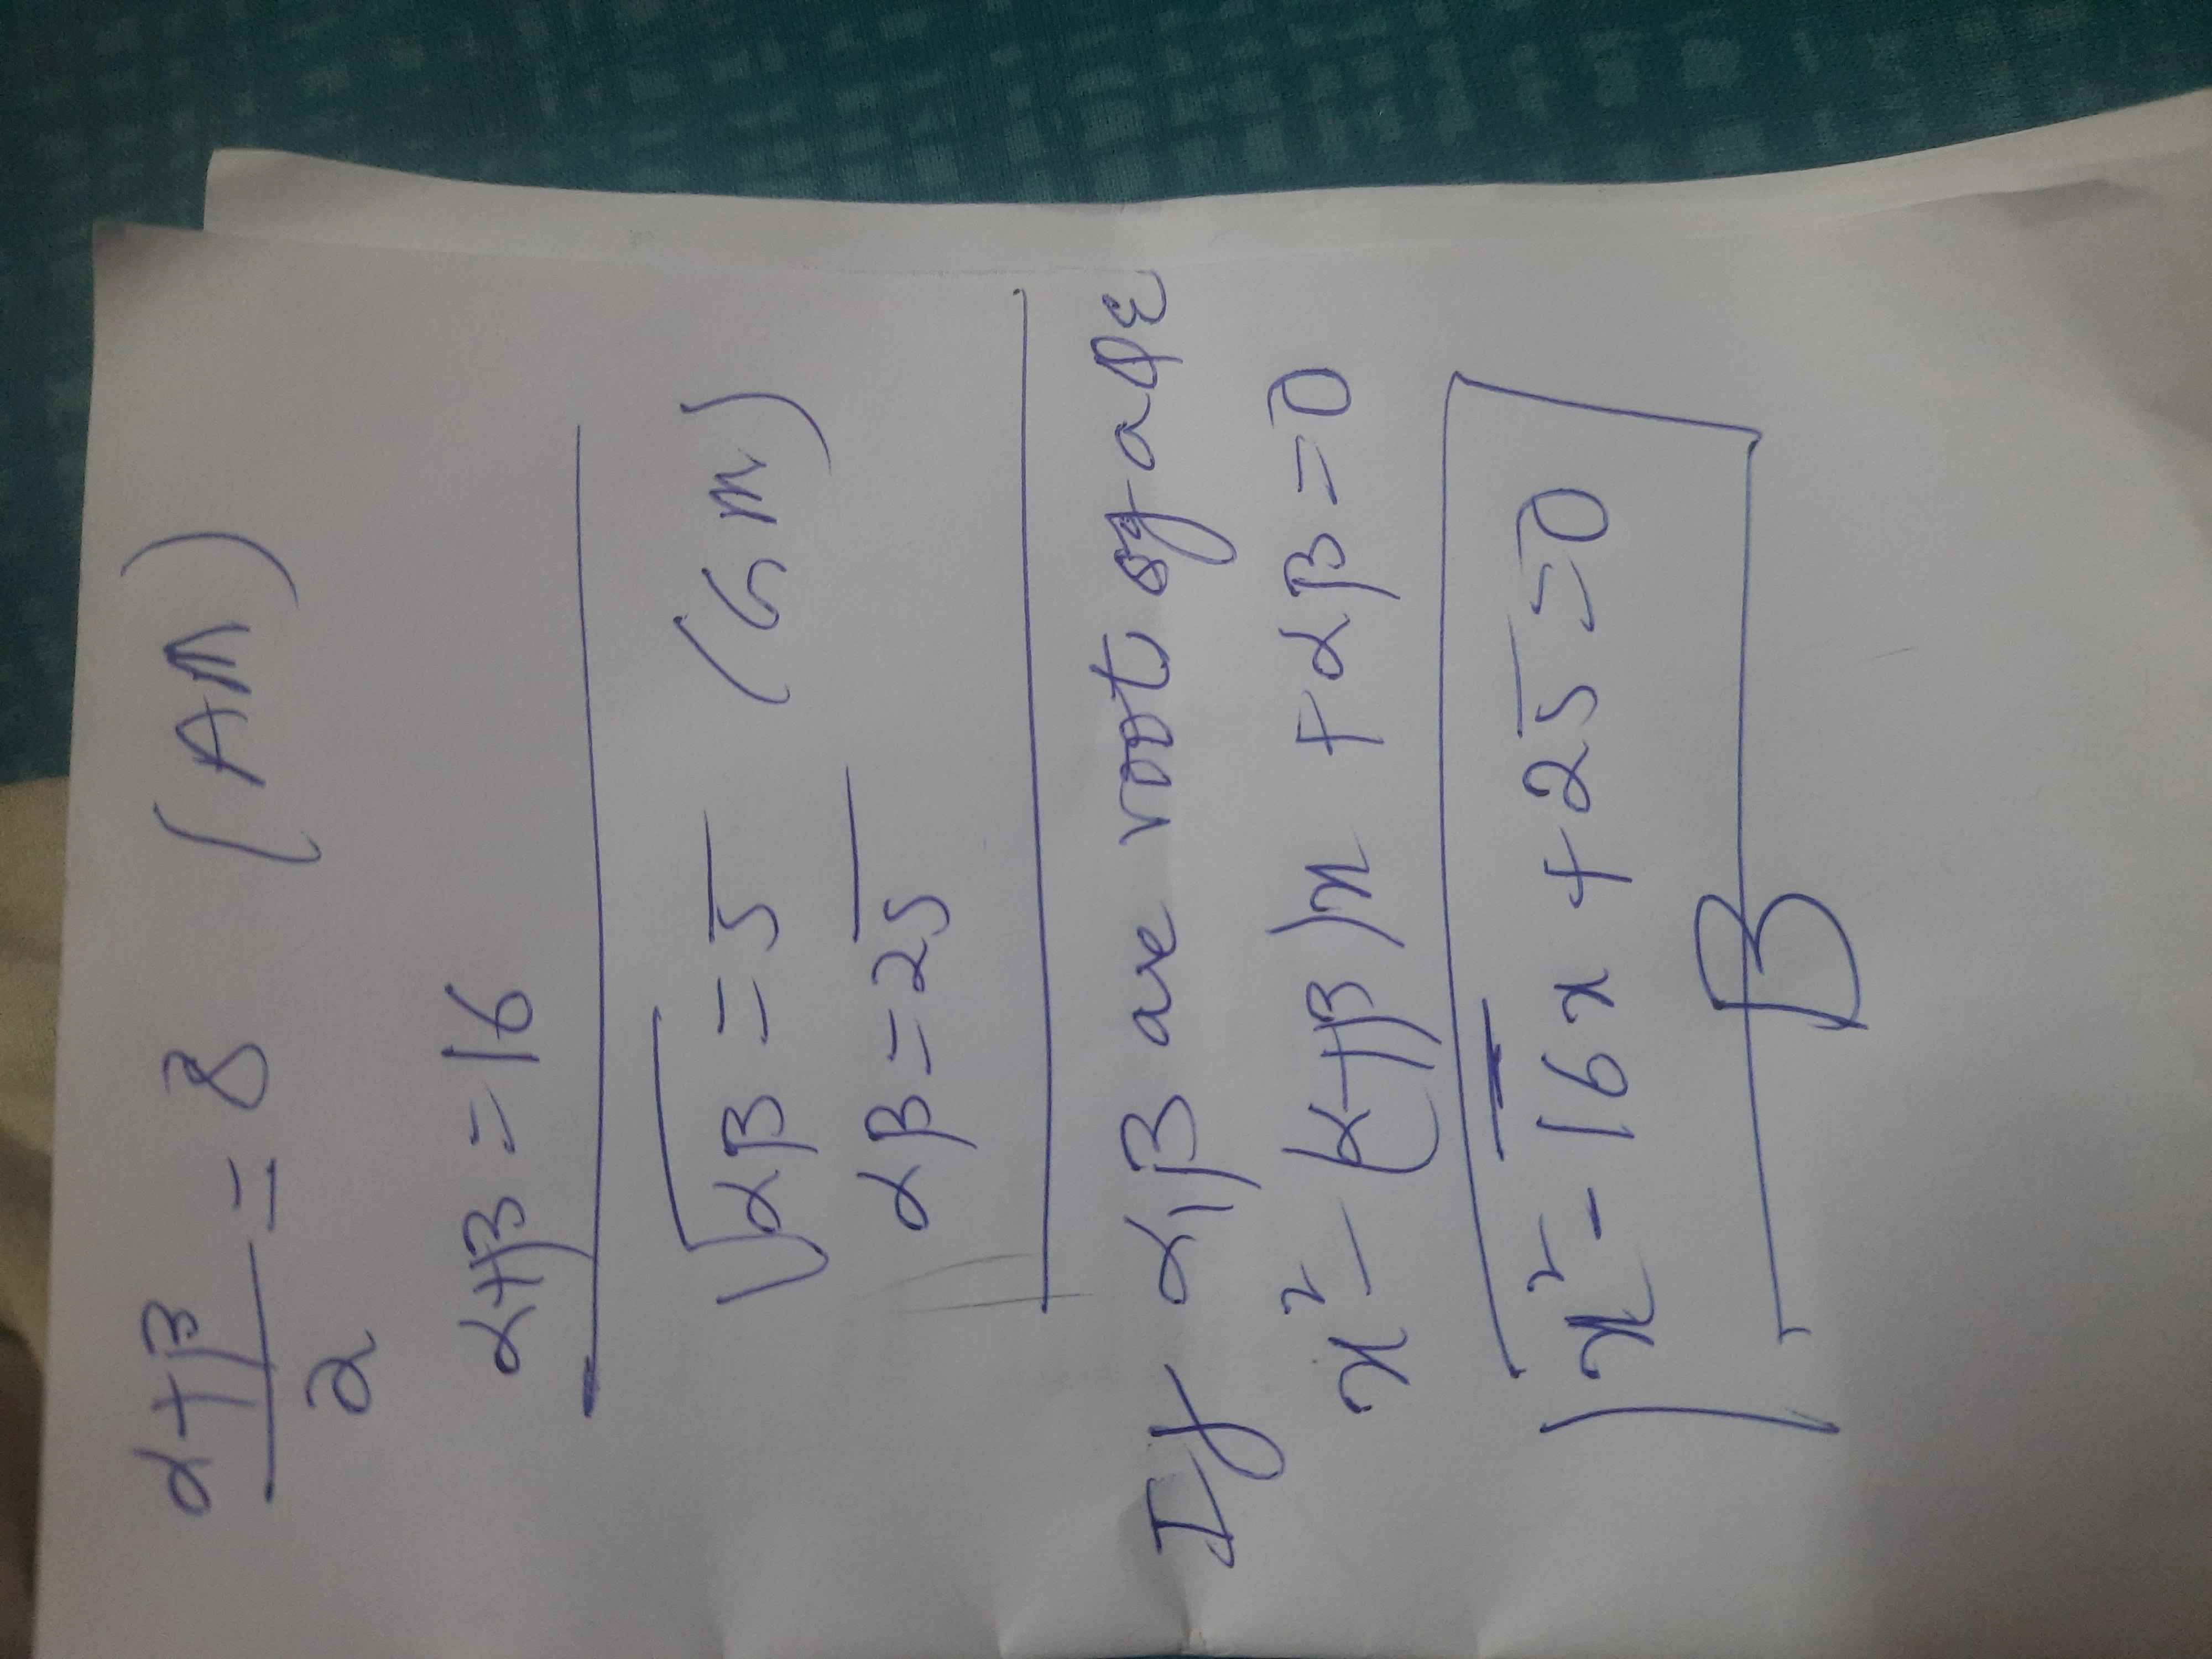 α+β/2 = 8 (AM)
α+β = 16
√αβ = 5 (GM)
αβ = 25
If α,β are root of a QE
x² - (α+β)x + αβ = 0
x² - 16x + 25 = 0
B